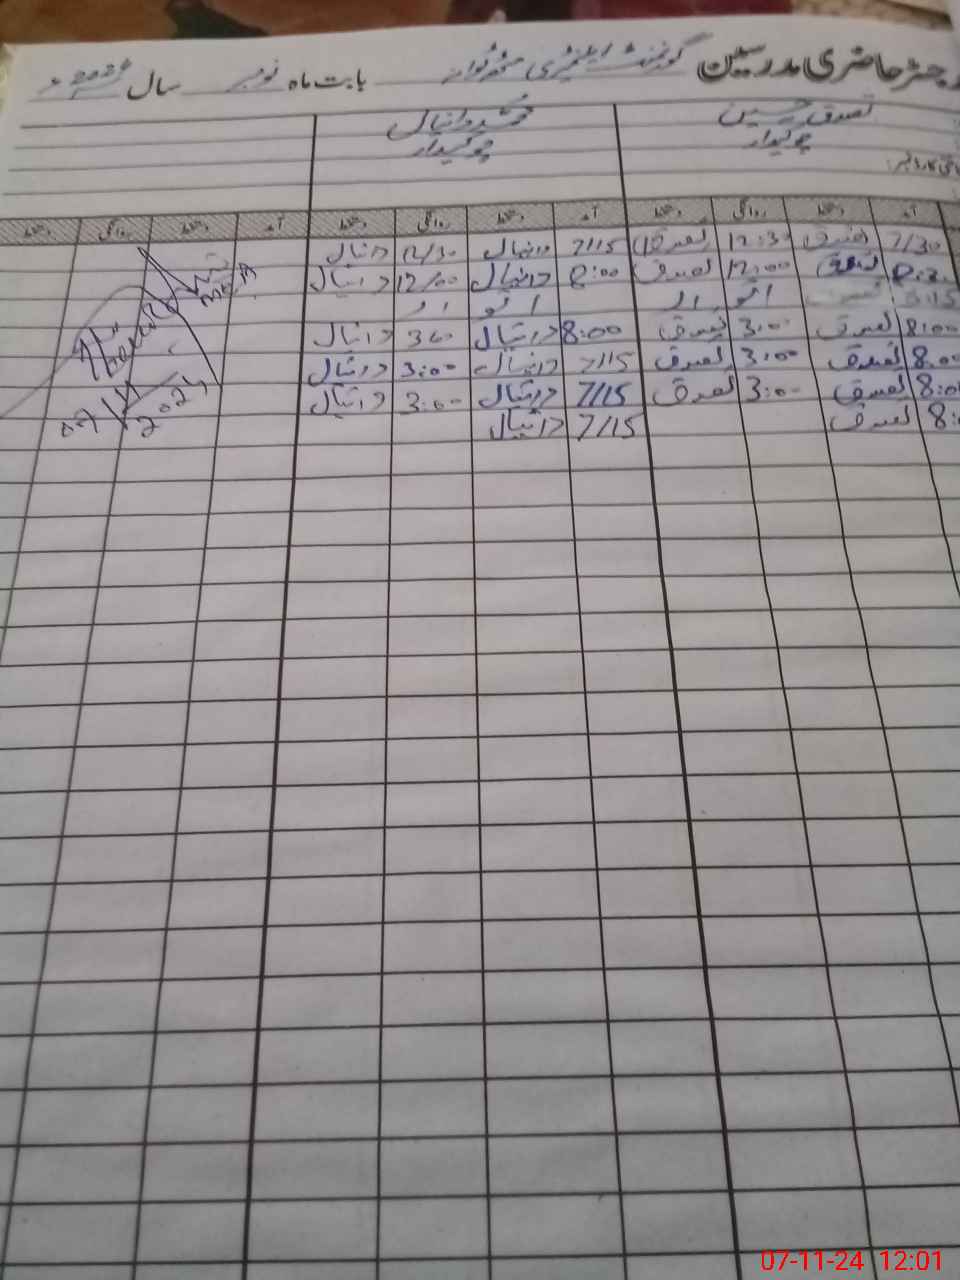 رجسٹر حاضری مدرسین گورنمنٹ ایلیمنٹری بابت ماہ نومبر سال 2024ء
تصدق حسین محمد دانیال
چوکیدار چوکیدار
آمد دستخط روانگی دستخط آمد دستخط روانگی دستخط آمد دستخط روانگی دستخط
7/30 تصدق 12:30 تصدق 7/15 دانیال 12/30 دانیال
تصدق 12:00 تصدق 8:00 دانیال 12/00 دانیال
اتوار اتوار
8:00 تصدق 3:00 تصدق 8:00 دانیال 300 دانیال
8:00 تصدق 3:00 تصدق 7/15 دانیال 3:00 دانیال
8:00 تصدق 3:00 تصدق 7/15 دانیال 3:00 دانیال
تصدق 7/15 دانیال
07/11/2024
07-11-24 12:01